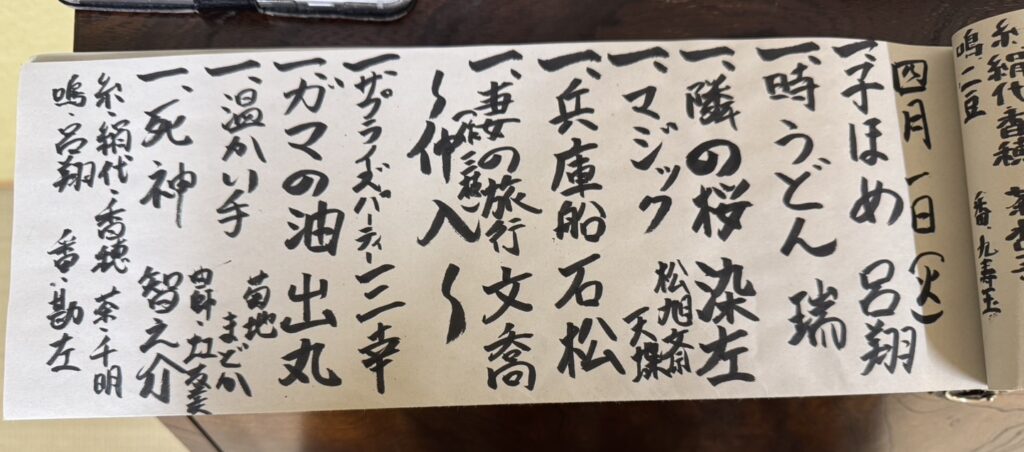 糸・絹代・香穂
鳴 二豆 番・九寿玉
四月一日(火)
一、子ほめ 呂翔
一、時うどん 瑞
一、隣の桜 染左
一、マジック 松旭斎 天蝶
一、兵庫船 石松
一、妻の旅行(作・三枝) 文喬
〜仲入〜
一、サプライズパーティー 三幸
一、ガマの油 出丸
一、温かい手 菊地 まどか
曲師・虹友美
一、死神 智之介
糸・絹代・香穂 茶・千明
鳴・呂翔 番・勘左